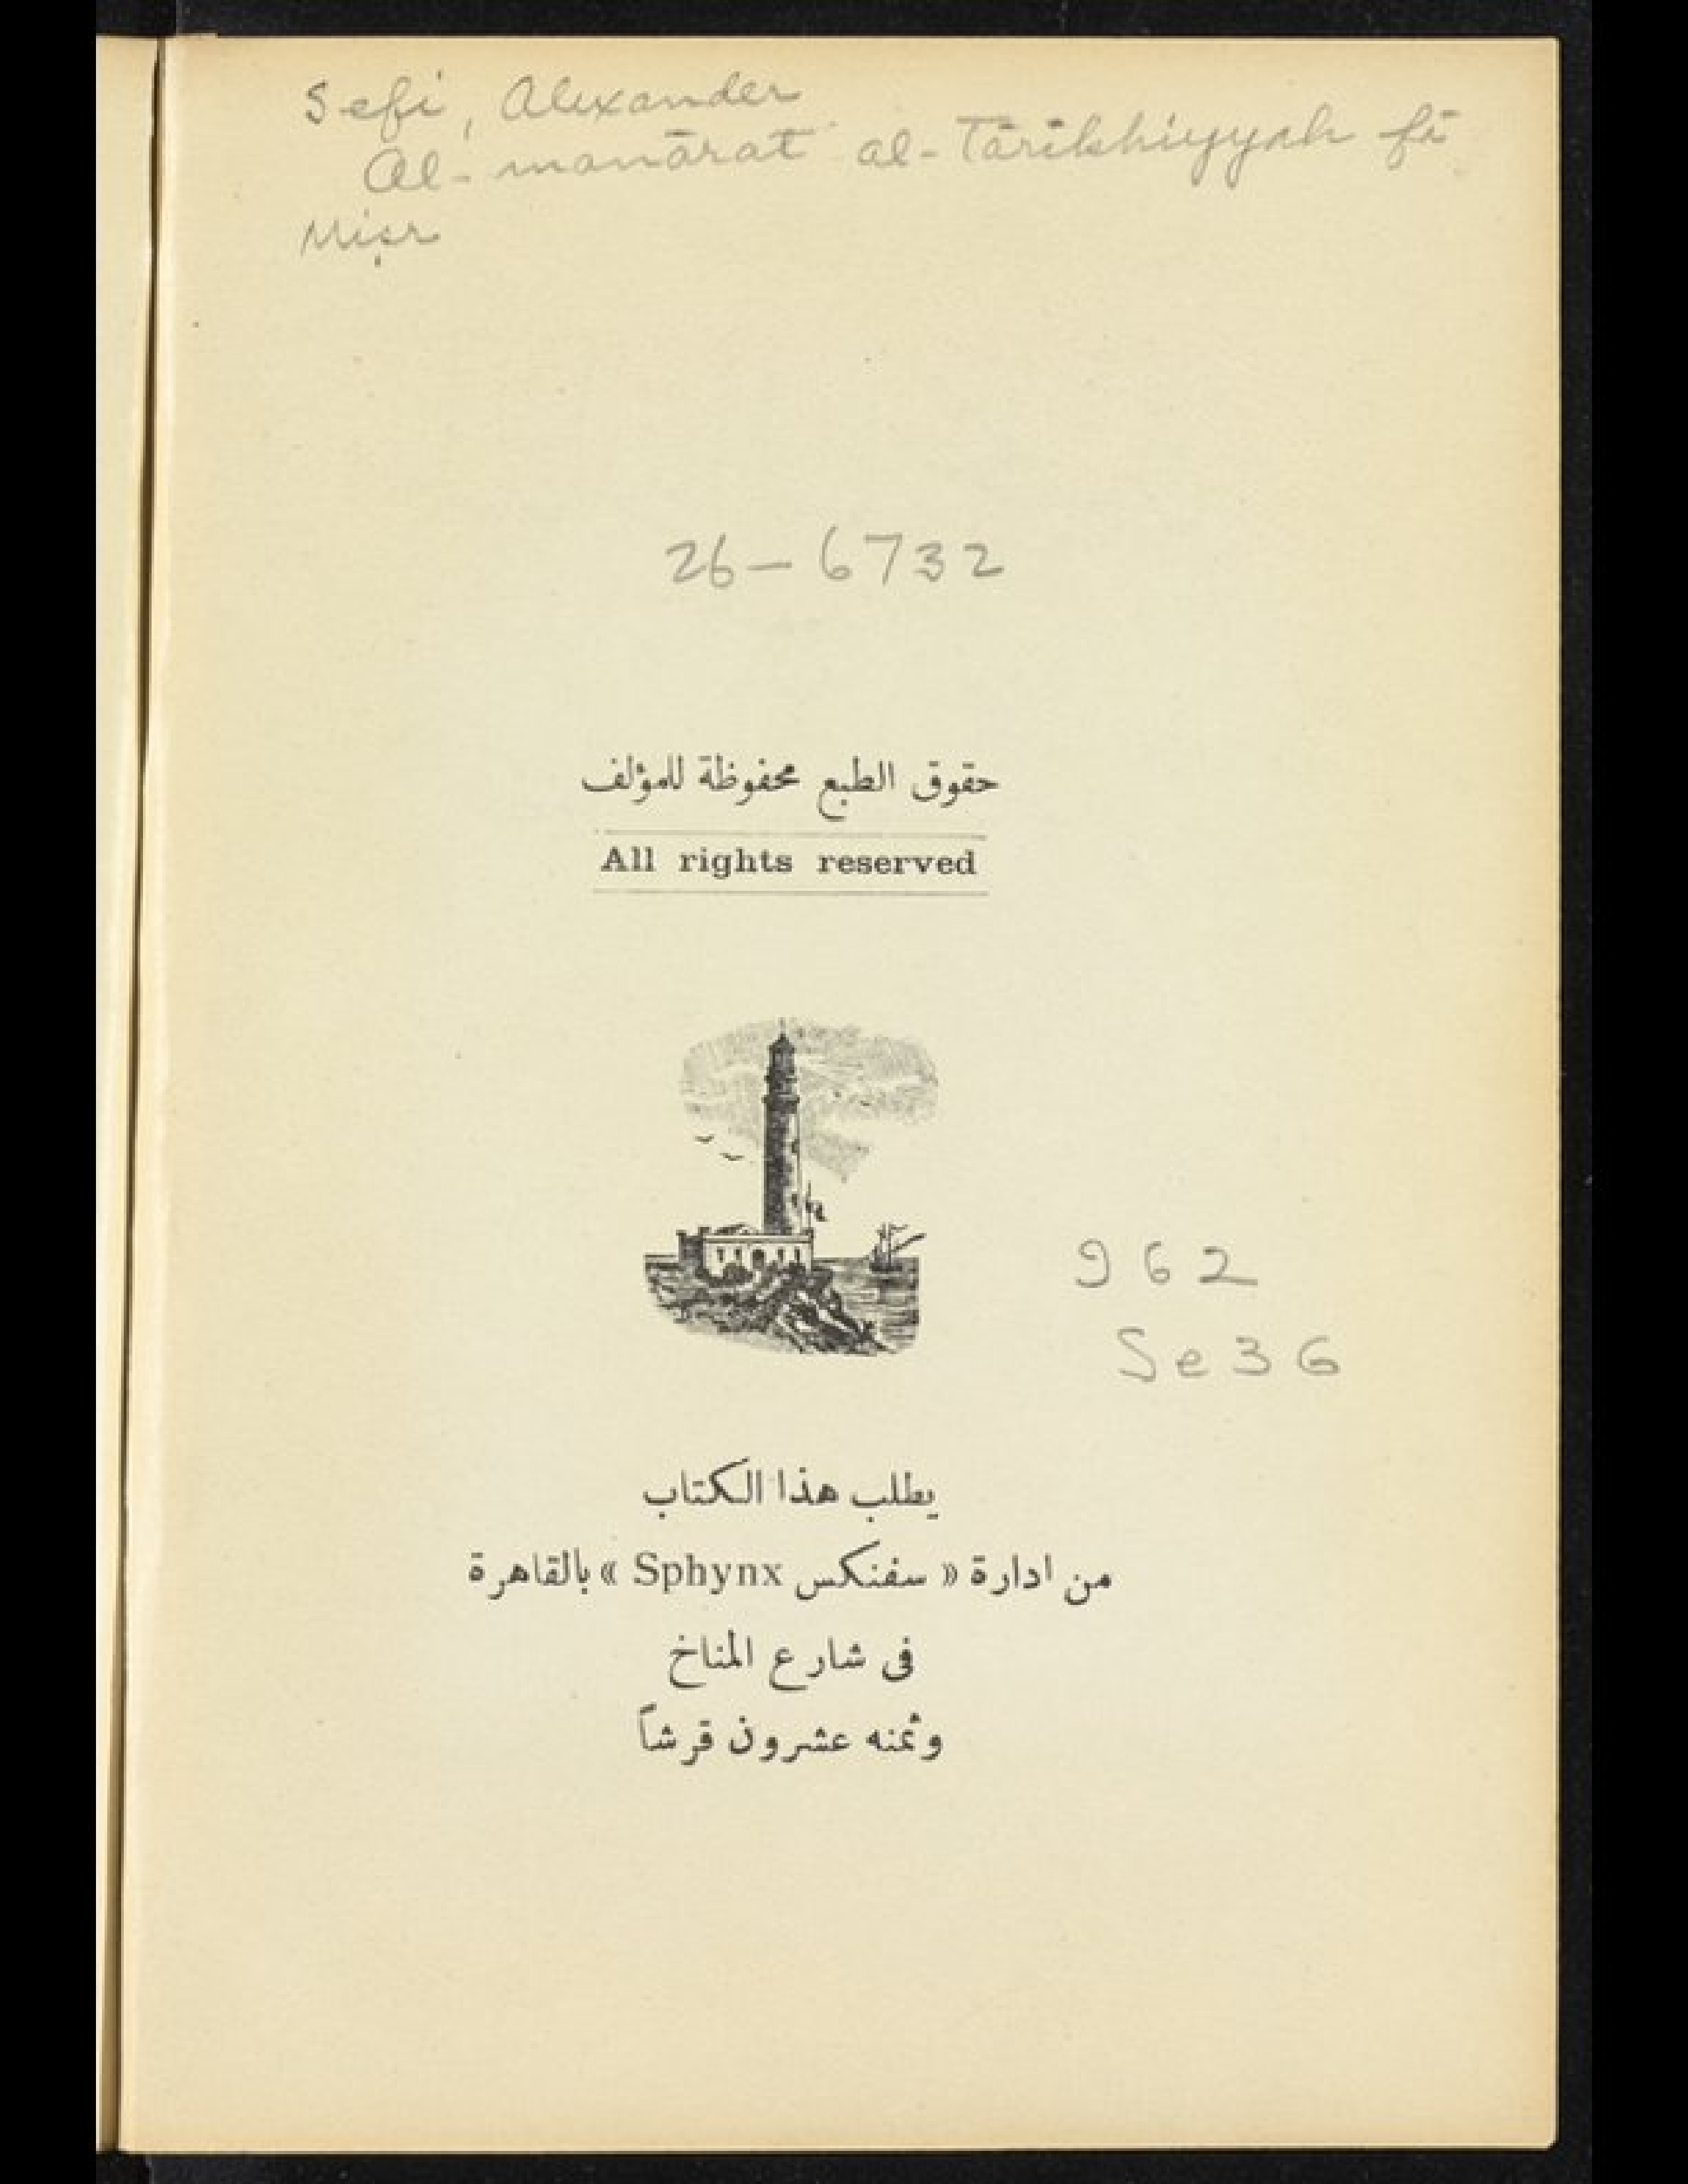 Sefi, Alexander
Al-manārat al-Tārīkhiyyah fī
Miṣr
26-6732
حقوق الطبع محفوظة للمؤلف
All rights reserved
962
Se36
يطلب هذا الكتاب
من ادارة « سفنكس Sphynx » بالقاهرة
فى شارع المناخ
وثمنه عشرون قرشاً